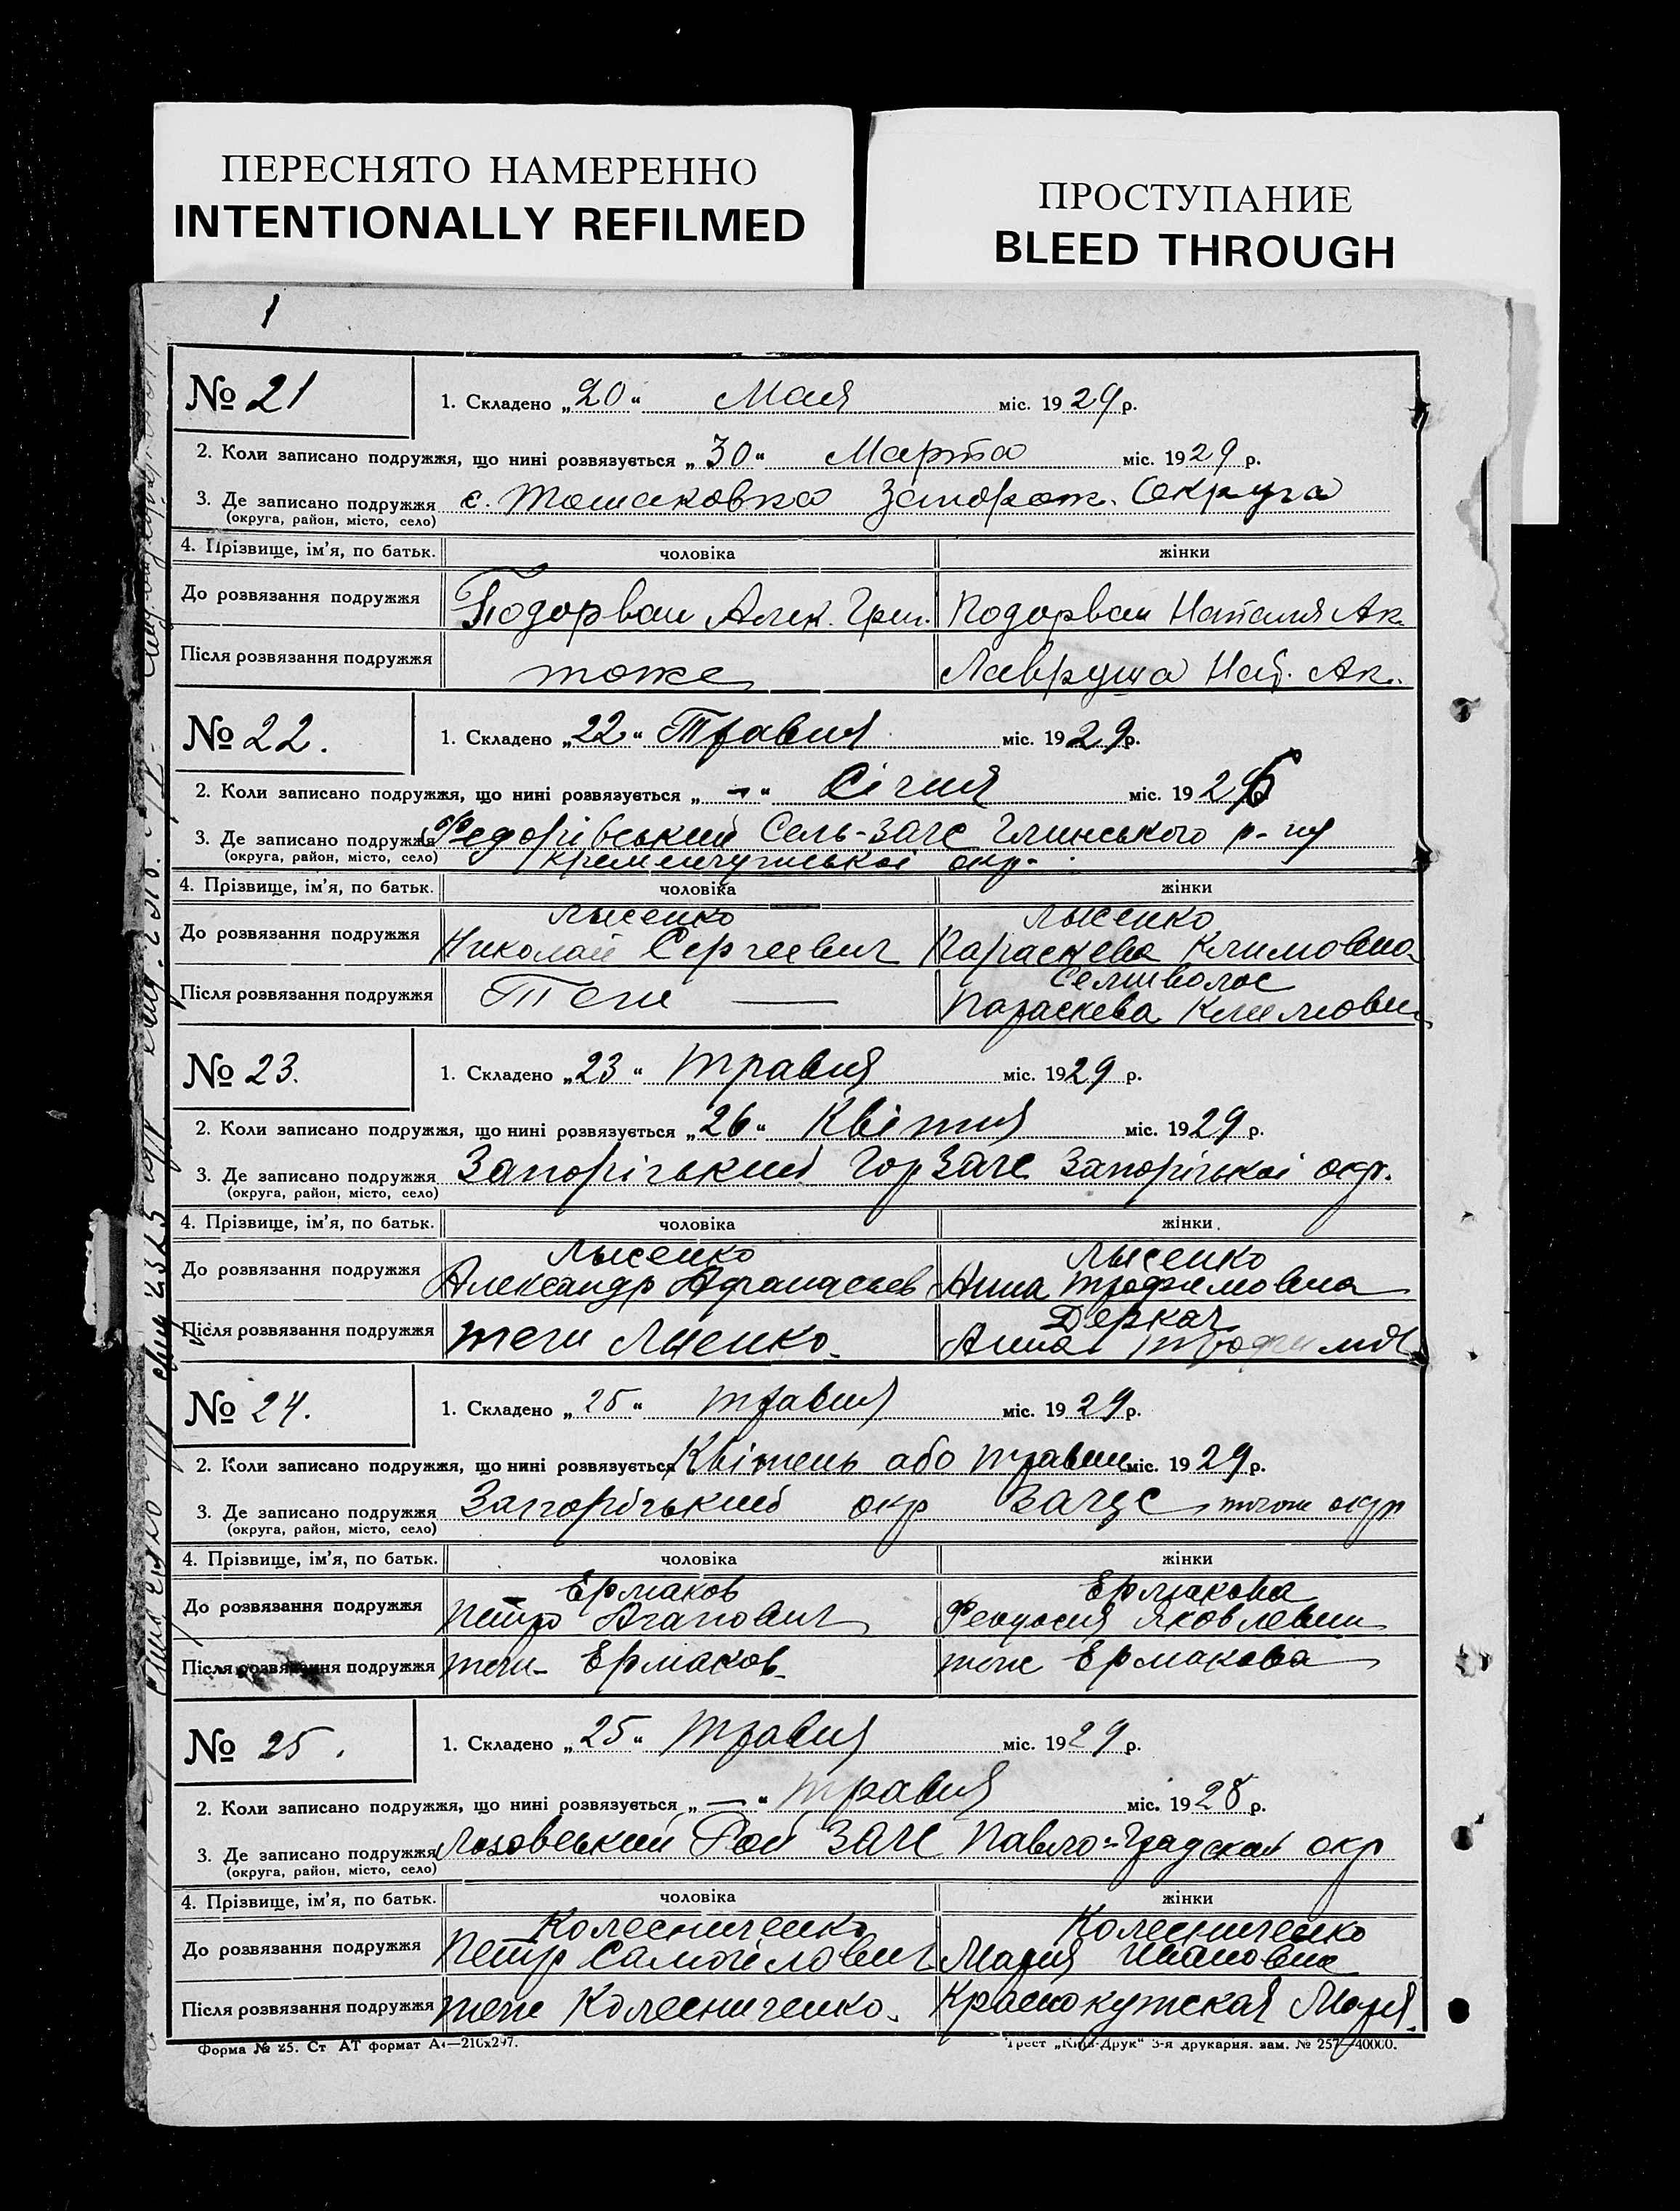 ПЕРЕСНЯТО НАМЕРЕННО
INTENTIONALLY REFILMED
ПРОСТУПАНИЕ
BLEED THROUGH
1
№ 21
1. Складено „20“ Мая міс. 1929 р.
2. Коли записано подружжя, що нині розвязується „30“ Марта міс. 1929 р.
3. Де записано подружжя с. Томаковка Запорож. Округа
(округа, район, місто, село)
4. Прізвище, ім’я, по батьк. чоловіка жінки
До розвязання подружжя Подорван Алек. Григ. Подорван Наталия Ак.
Після розвязання подружжя тоже Лавруша Нат. Ак.
№ 22.
1. Складено „22“ Травня міс. 1929 р.
2. Коли записано подружжя, що нині розвязується „—“ Січня міс. 1926
3. Де записано подружжя Федорівський Сель-ЗАГС Глинського р-ну
(округа, район, місто, село) Кременчугської окр.
4. Прізвище, ім’я, по батьк. чоловіка жінки
Лысенко Лысенко
До розвязання подружжя Николай Сергеевич Параскева Климовна
Семиволос
Після розвязання подружжя Теж — Параскева Климовн
№ 23.
1. Складено „23“ травня міс. 1929 р.
2. Коли записано подружжя, що нині розвязується „26“ Квітня міс. 1929 р.
3. Де записано подружжя Запорізький ГорЗАГС Запорізької окр.
(округа, район, місто, село)
4. Прізвище, ім’я, по батьк. чоловіка жінки
Лысенко Лысенко
До розвязання подружжя Александр Афанасьев Анна Трофимовна
Деркач
Після розвязання подружжя теж Лиенко. Анна Трофимов
№ 24.
1. Складено „25“ травня міс. 1929 р.
2. Коли записано подружжя, що нині розвязується Квітень або травень міс. 1929 р.
3. Де записано подружжя Запорізький окр ЗАГС окр
(округа, район, місто, село)
4. Прізвище, ім’я, по батьк. чоловіка жінки
Ермаков Ермакова
До розвязання подружжя Петро Агапович Феодосия Яковлевн
Після розвязання подружжя теж- Ермаков- теж Ермакова
№ 25.
1. Складено „25“ травня міс. 1929 р.
2. Коли записано подружжя, що нині розвязується „—“ травня міс. 1928 р.
3. Де записано подружжя Лозовський Рай ЗАГС Павло-Градской окр
(округа, район, місто, село)
4. Прізвище, ім’я, по батьк. чоловіка жінки
Колесниченко Колесниченко
До розвязання подружжя Петр Самойлович Мария Ивановна
Після розвязання подружжя теж Колесниченко. Краснокутская Мария.
Форма № 25. Ст АТ формат А4—210х297.
Трест „Київ-Друк“ 3-я друкарня. зам. № 257—40000.